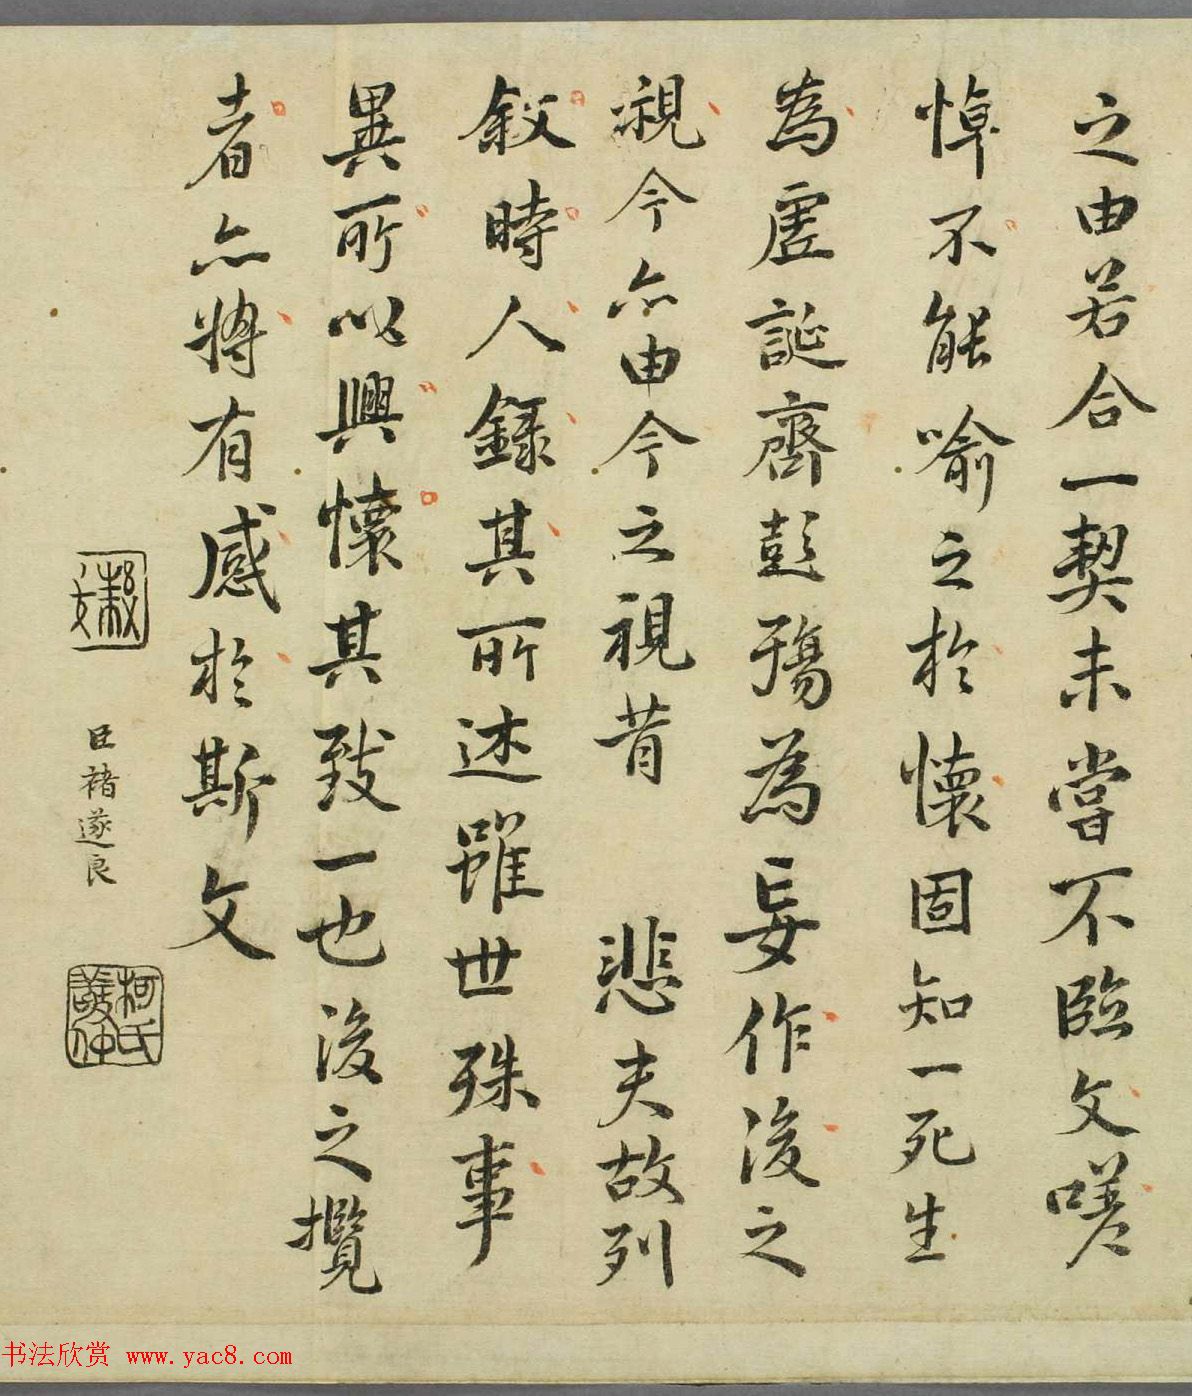 之由若合一契未嘗不臨文嗟
悼不能喻之於懷固知一死生
為虗誕齊彭殤為妄作後之
視今亦由今之視昔 悲夫故列
叙時人錄其所述雖世殊事
異所以興懷其致一也後之攬
者亦將有感於斯文
臣褚遂良
柯氏敬仲
书法欣赏 www.yac8.com